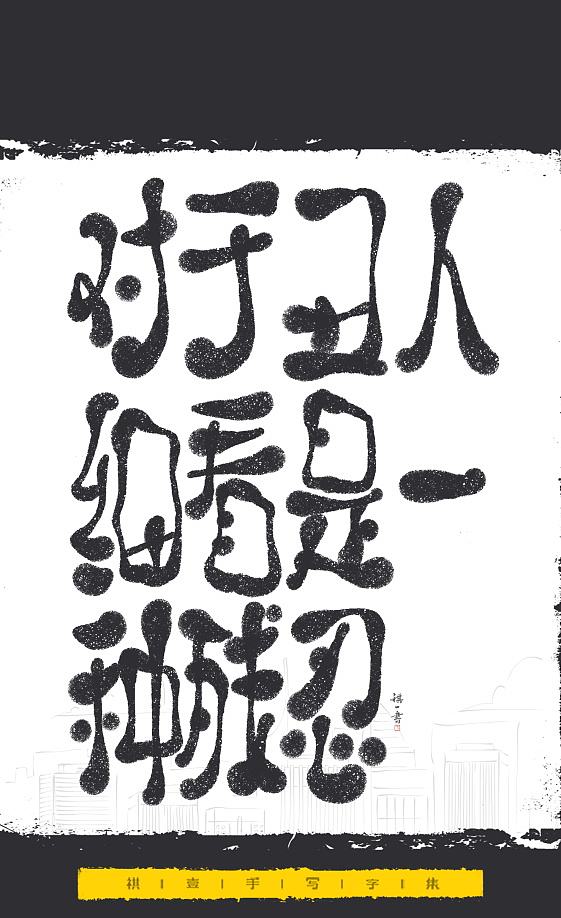 对于丑人
细看是一
种残忍
祺一书
祺壹手写字集